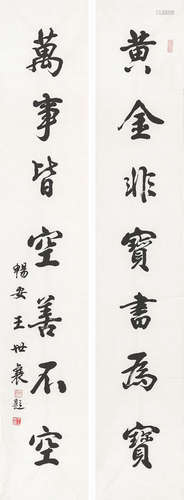 黃金非寶書為寶
萬事皆空善不空
暢安王世襄題